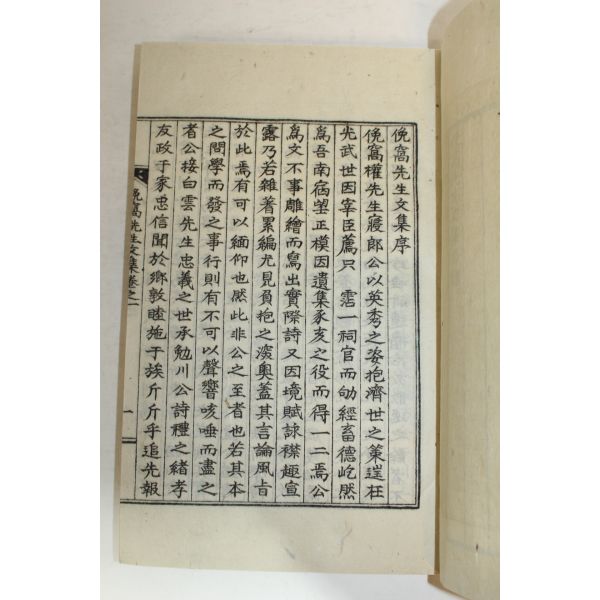 俛窩先生文集序
俛窩權先生寢郎公以英秀之姿抱濟世之策遑枉
光武世因宰臣薦只霑一祠官而劬經畜德屹然
爲吾南宿望正模因遺集豕亥之役而得一二焉公
爲文不事雕繪而寫出實際詩又因境賦詠襟趣宣
露乃若雜著累編尤見負抱之深奧蓋其言論風旨
於此焉有可以緬仰也然此非公之至者也若其本
之問學而發之事行則有不可以聲響咳唾而盡之
者公接白雲先生忠義之世承勉川公詩禮之緖孝
友政于家忠信聞於鄉敦睦施于族斤斤乎追先報
俛窩先生文集卷之一
一